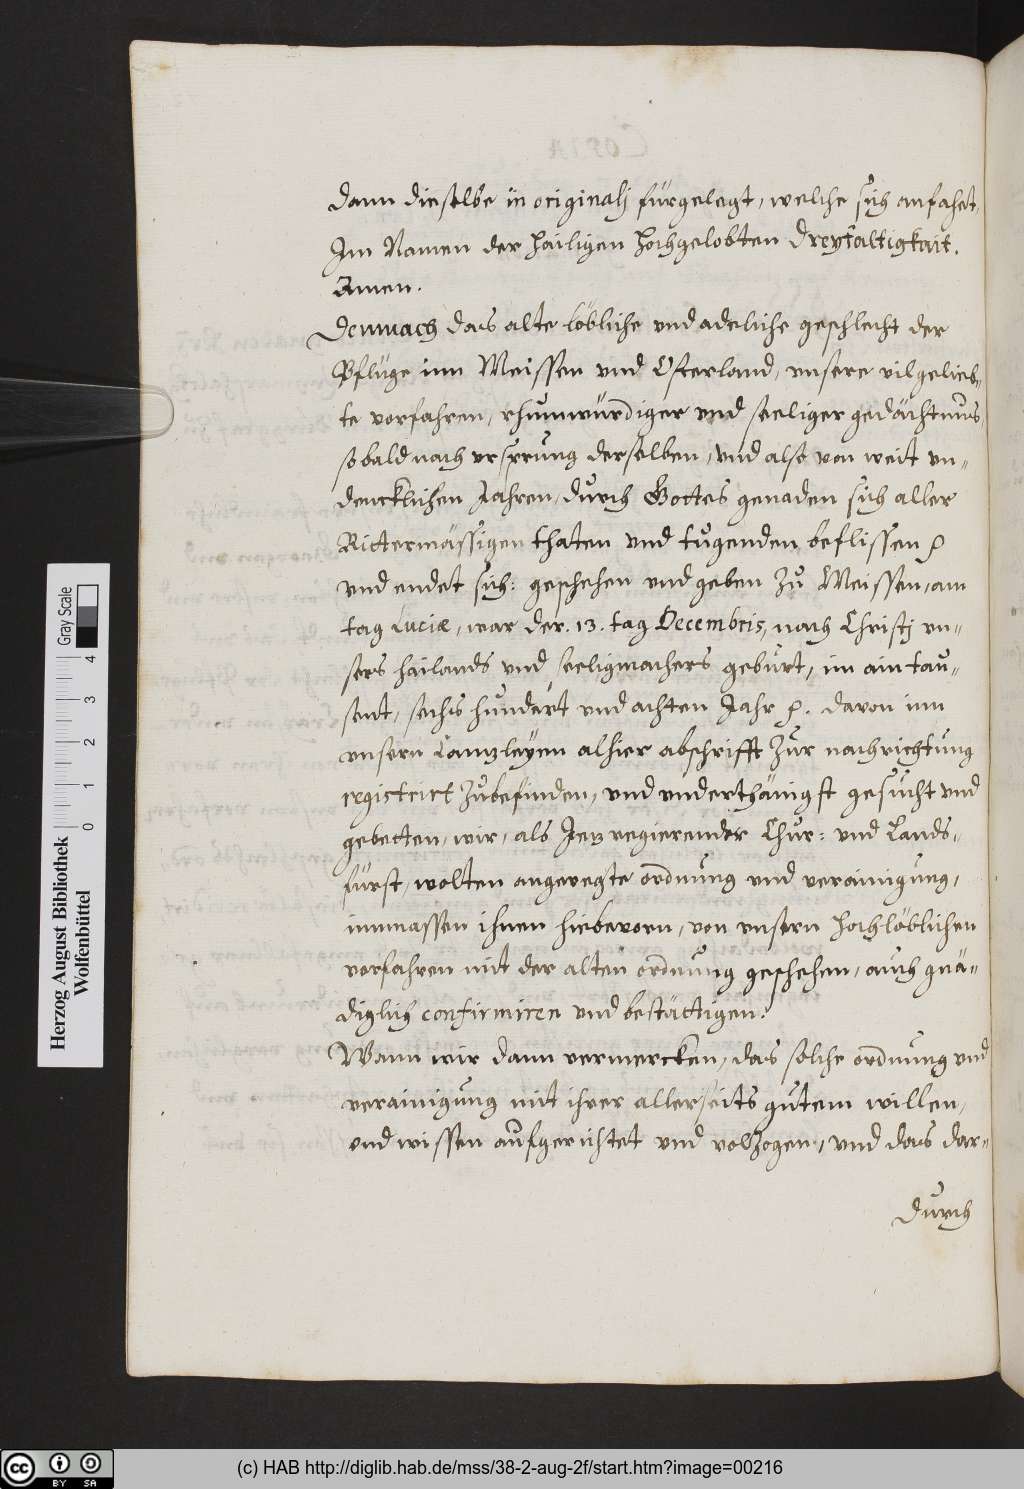 dann dieselbe in originalj fürgelegt, welche sich anfahet,
Im Namen der hailigen hochgelobten Dreyfaltigkait.
Amen.
Demnach das alte löbliche vnd adeliche geschlecht der
Pflüge inn Meissen vnd Osterland, vnsere vilgelieb-
te vorfahren, rhumwürdiger vnd seeliger gedächtnus,
so bald nach vrsprung derselben, vnd also von weit vn-
dencklichen Jahren, durch Gottes genaden sich aller
Rittermässigen thaten vnd tugenden beflissen ꝛc
vnd endet sich: geschehen vnd geben zu Meissen, am
tag Luciæ, war der .13. tag Decembris, nach Christj vn-
sers hailands vnd seeligmachers geburt, im ain tau-
sent, sechs hundert vnd achten Jahr ꝛc. davon inn
vnsern Canzleÿen alhier abschrifft zur nachrichtung
registrirt zubefinden, vnd vnderthänigst gesucht vnd
gebetten, wir, als Jetz regierender Chur: vnd Lands-
fürst, wolten angeregte ordnung vnd verainigung,
inmassen ihnen hiebevorn, von vnsern hochlöblichen
vorfahren mit der alten ordnung geschehen, auch gnä-
diglich confirmiren vnd bestättigen:
Wann wir dann vermercken, das solche ordnung vnd
verainigung mit ihrer allerseits gutem willen,
vnd wissen aufgerichtet vnd volzogen, vnd das dar-
durch
Herzog August Bibliothek
Wolfenbüttel
Gray Scale
0 1 2 3 4
cc BY SA
(c) HAB http://diglib.hab.de/mss/38-2-aug-2f/start.htm?image=00216